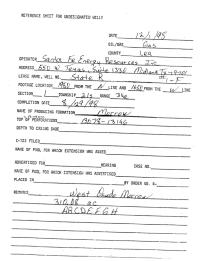 REFERENCE SHEET FOR UNDESIGNATED WELLS
DATE 12/1/98
OIL/GAS Gas
COUNTY Lea
OPERATOR Santa Fe Energy Resources Inc
ADDRESS 550 W Texas, Suite 1330 Midland Tx 79701
LEASE NAME, WELL NO. State R
FOOTAGE LOCATION FROM THE N LINE AND 1650 FROM THE W LINE
SECTION 1 TOWNSHIP 21s RANGE 34e
COMPLETION DATE 8/29/98
NAME OF PRODUCING FORMATION Morrow
TOP OF PERFORATIONS 13146
DEPTH TO CASING SHOE
C-123 FILED
NAME OF POOL FOR WHICH EXTENSION WAS ASKED
ADVERTISED FOR HEARING CASE NO.
NAME OF POOL FOR WHICH EXTENSION WAS ADVERTISED
PLACED IN BY ORDER NO. R-
REMARKS West Morrow
310.08 ac
ABCDEFGH